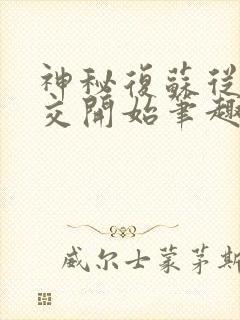 神秘復蘇從
交開始筆趣
威尔士蒙茅斯